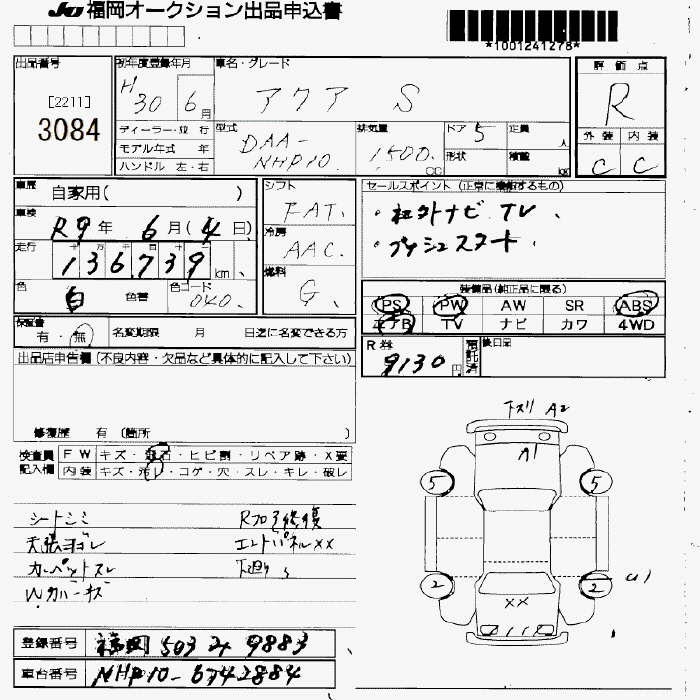 JU 福岡オークション出品申込書
*1001241278*
出品番号
[2211]
3084
初年度登録年月
H30 6月
車名・グレード
アクア S
評価点
R
外装 内装
C C
ディーラー・並行
モデル年式 年
ハンドル 左・右
型式
DAA-
NHP10.
排気量
1500.
CC
ドア 5
形状
定員 人
積載 kg
車歴
自家用( )
車検
R9年 6月(4日)
走行
136,739 km
色
白
色替
色コード
040.
シフト
FAT.
冷房
AAC.
燃料
G.
セールスポイント (正常に機能するもの)
・社外ナビ TV、
・プッシュスタート
装備品(純正品に限る)
PS PW AW SR ABS
エアB TV ナビ カワ 4WD
保証書
有・無
名変期限 月 日迄に名変できる方
R券
9130円
預託済
後日品
出品店申告欄(不良内容・欠品など具体的に記入して下さい)
修復歴 有 (箇所 )
検査員
記入欄
FW キズ・飛石・ヒビ割・リペア跡・X要
内装 キズ・汚レ・コゲ・穴・スレ・キレ・破レ
シートシミ
天張ヨゴレ
カーペットスレ
Wカバーキズ
Rフロア修復
エンドパネルXX
下廻りS
下スリ A2
A1
5 5
2 2
XX
登録番号
福岡 503 9883
車台番号
NHP10-6742884